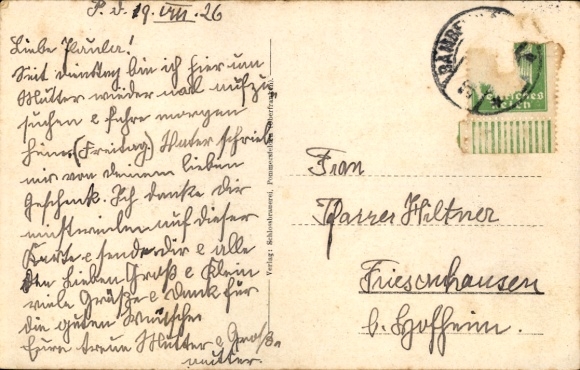 P. d. 19. VIII. 26
Liebe Paula!
Seit dienstag bin ich hier um
Mutter wieder mal aufzu
suchen & fahre morgen
heim. (Freitag.) Vater schrieb
mir von deinem lieben
Geschenk. Ich danke dir
mittweilen auf dieser
Karte & sende dir & alle
den lieben Groß & Klein
viele Grüße & dank für
die guten Wünsche
Eure treue Mutter & Groß-
mutter.
Verlag: Schlossbrauerei, Pommersfelden (Oberfranken).
BAMBERG
Deutsches
Reich
Frau
Pfarrer Hiltner
Friesenhausen
b. Hofheim.